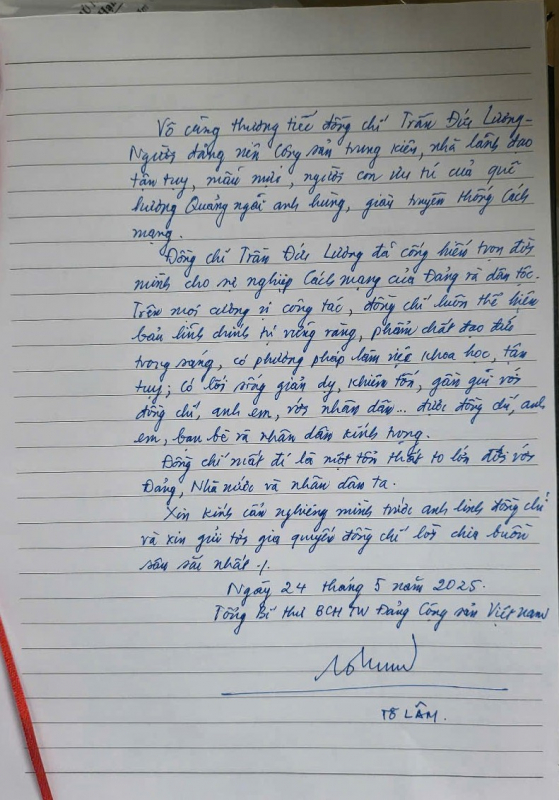 Vô cùng thương tiếc đồng chí Trần Đức Lương -
Người đảng viên Cộng sản trung kiên, nhà lãnh đạo
tận tụy, mẫu mực, người con ưu tú của quê
hương Quảng Ngãi anh hùng, giàu truyền thống Cách
mạng.
Đồng chí Trần Đức Lương đã cống hiến trọn đời
mình cho sự nghiệp Cách mạng của Đảng và dân tộc.
Trên mọi cương vị công tác, đồng chí luôn thể hiện
bản lĩnh chính trị vững vàng, phẩm chất đạo đức
trong sáng, có phương pháp làm việc khoa học, tận
tụy; có lối sống giản dị, khiêm tốn, gần gũi với
đồng chí, anh em, với nhân dân... được đồng chí, anh
em, bạn bè và nhân dân kính trọng.
Đồng chí mất đi là một tổn thất to lớn đối với
Đảng, Nhà nước và nhân dân ta.
Xin kính cẩn nghiêng mình trước anh linh đồng chí
và xin gửi tới gia quyến đồng chí lời chia buồn
sâu sắc nhất ./.
Ngày 24 tháng 5 năm 2025.
Tổng Bí thư BCH TW Đảng Cộng sản Việt Nam
TÔ LÂM.